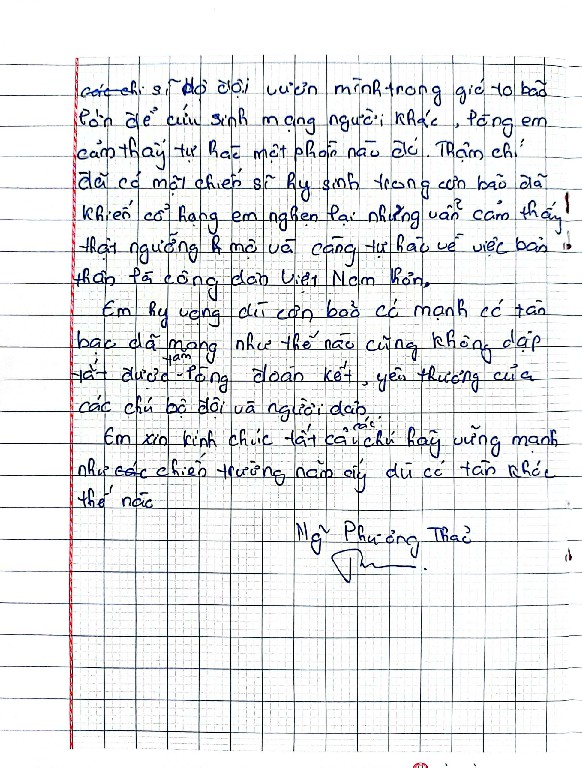 các chi sĩ bộ đội vươn mình trong gió to bão
lớn để cứu sinh mạng người khác, lòng em
cảm thấy tự hào một phần nào đó. Thậm chí
đã có một chiến sĩ hy sinh trong cơn bão đã
khiến cổ họng em nghẹn lại nhưng vẫn cảm thấy
thật ngưỡng mộ và càng tự hào về việc bản
thân là công dân Việt Nam hơn,
Em hy vọng dù cơn bão có mạnh có tàn
bạc dã mạng như thế nào cũng không dập
tắt được tấm lòng đoàn kết, yêu thương của
các chú bộ đội và người dân,
Em xin kính chúc tất cả các chú hãy vững mạnh
như các chiến trường năm ấy dù có tàn khốc
thế nào
Ng~ Phương Thảo